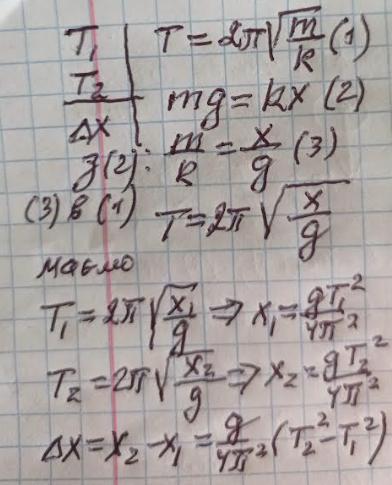 T₁ | T = 2π√(m/k) (1)
T₂ | mg = kx (2)
Δx
З(2): m/k = x/g (3)
(3) в (1) T = 2π√(x/g)
маємо
T₁ = 2π√(x₁/g) ⇒ x₁ = gT₁²/4π²
T₂ = 2π√(x₂/g) ⇒ x₂ = gT₂²/4π²
Δx = x₂ - x₁ = g/4π² (T₂² - T₁²)